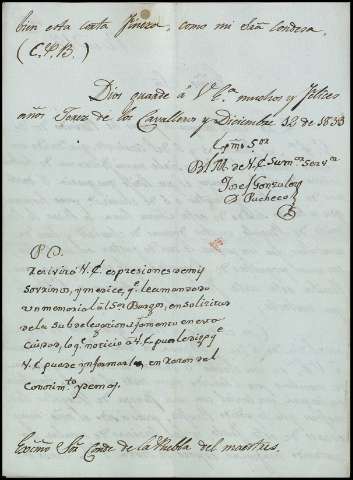 bien esta corta fineza, como mi Srã Condesa.
(C.P.B.)
Dios guarde á V.Ea. muchos y felices
años Jerez de los Cavalleros y Diciembre 12 de 1833
Exmo. Sor.
B.L.M. de V.E. Su mor. Servor.
Josef Gonzalez
Pacheco
P.D.
Recivirá V.E. espresiones de mis
Sovrinos, y me dice, qe. le a mandado
un memorial al Sor. Burgos, en solicitud
de la Subdelegacion de fomento en esta
Ciudad, lo qe. noticio a V.E.
V.E. puede ynformarle, en razon del
Conocimto.
Excmõ. Sõr. Conde de la Puebla del maestre.